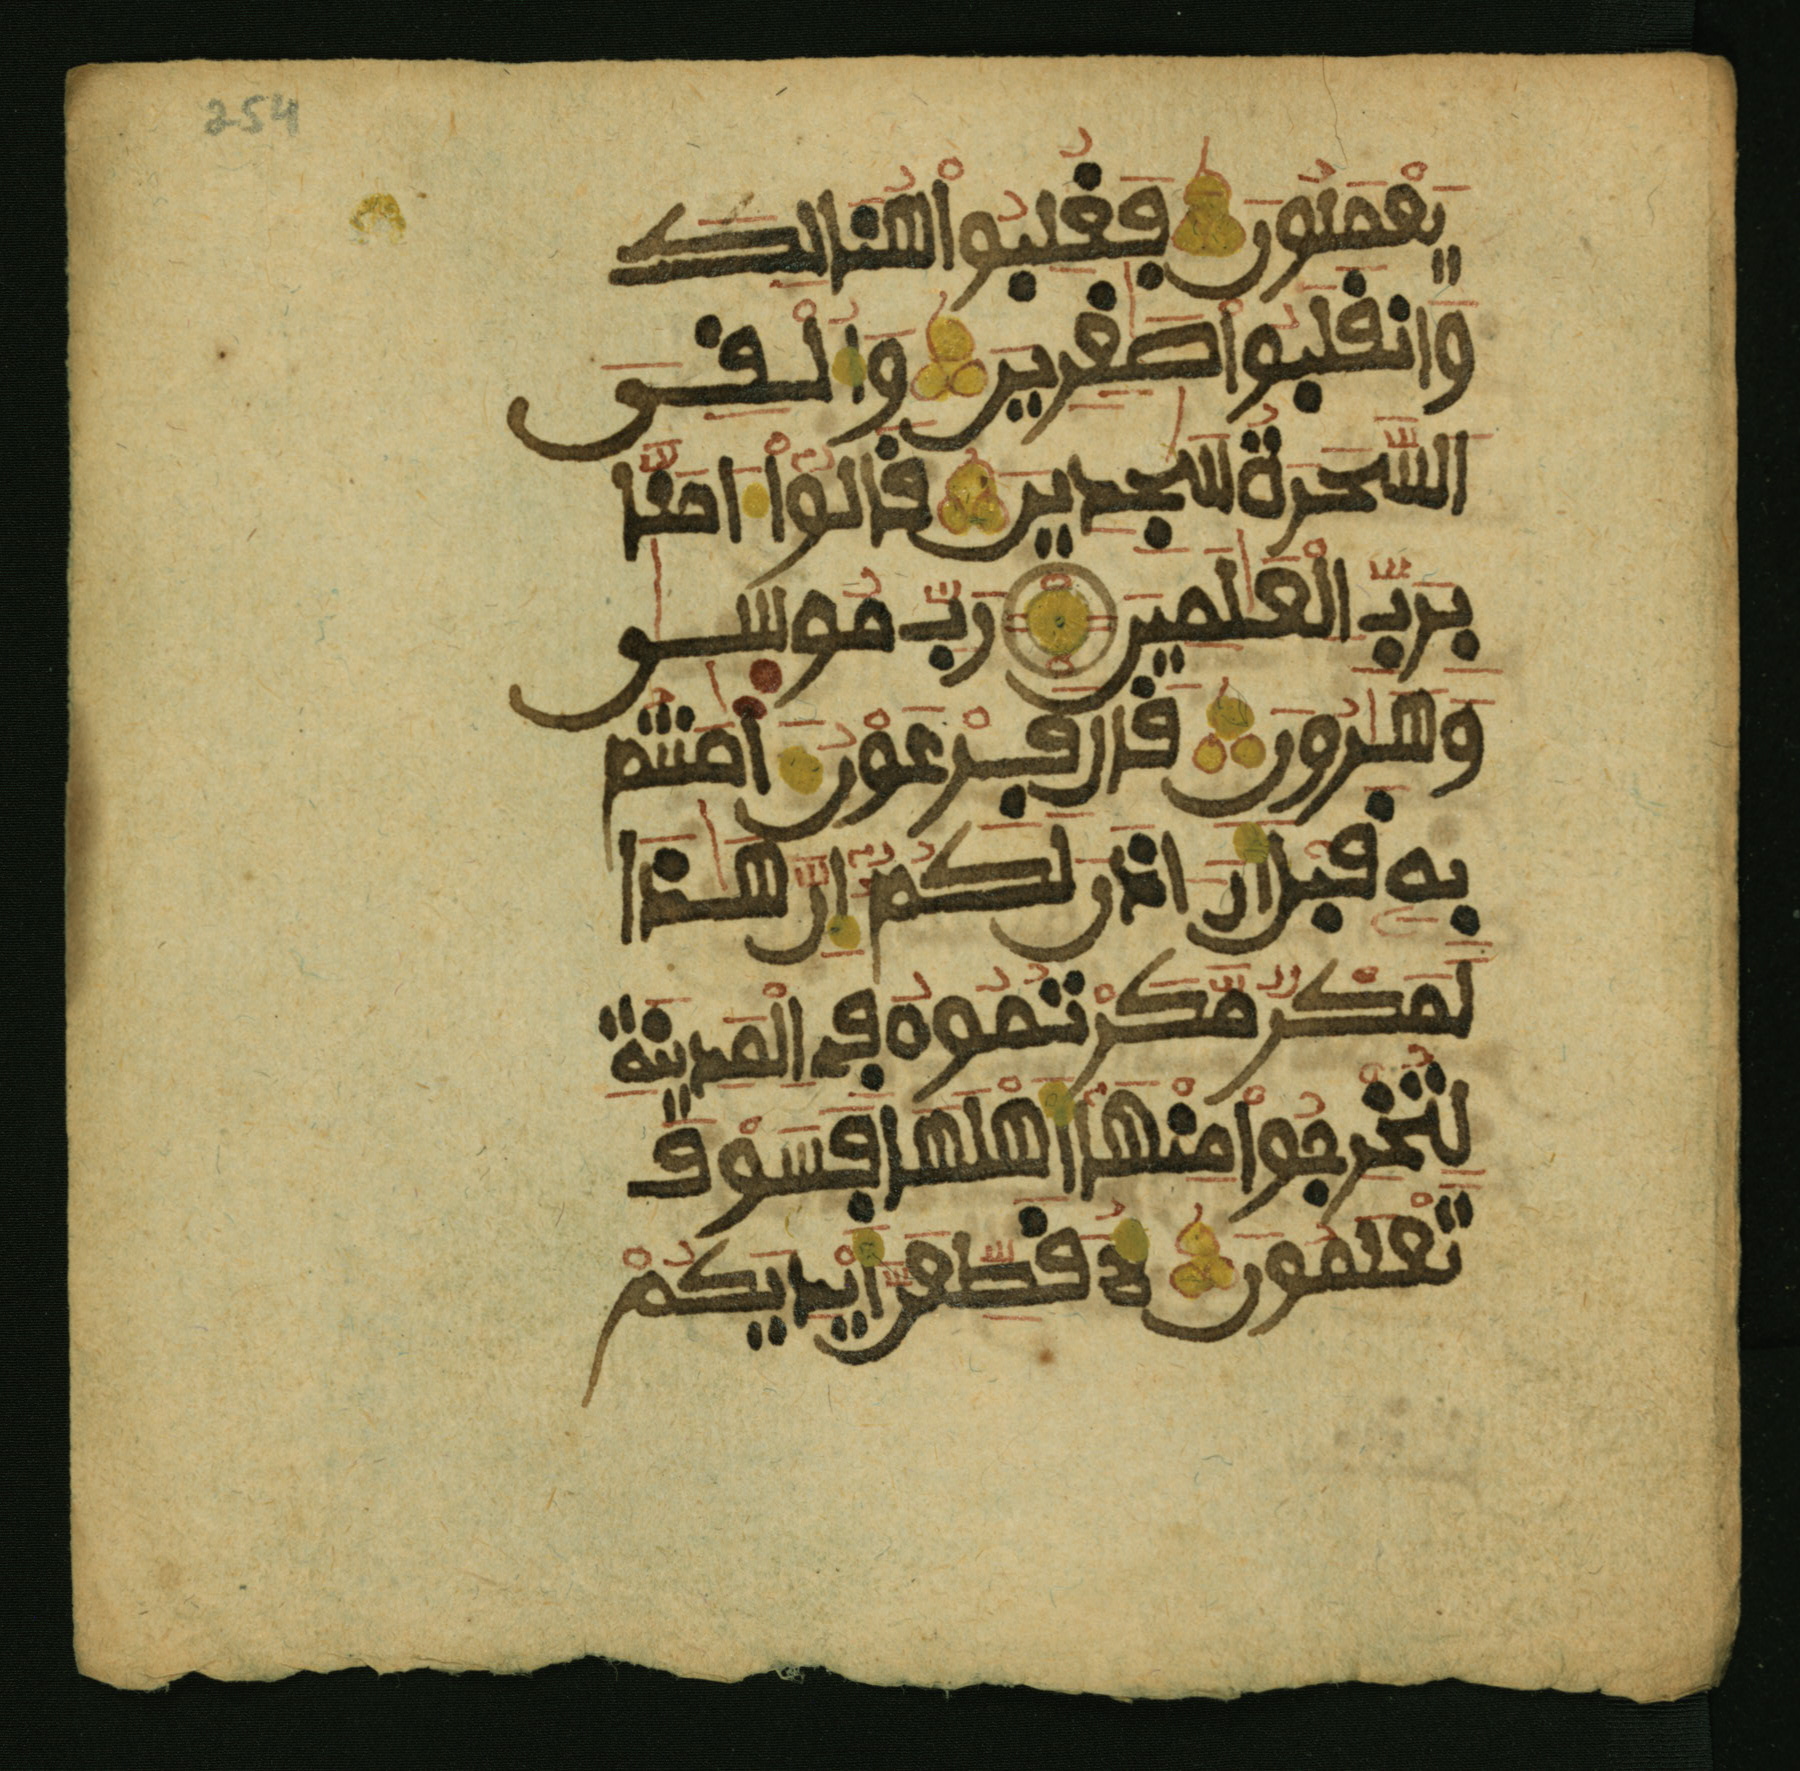 254
يَعْمَلُونَ فَغُلِبُواْ هُنَالِكَ
وَانقَلَبُواْ صَٰغِرِينَ وَأُلْقِىَ
السَّحَرَةُ سَٰجِدِينَ قَالُوٓاْ ءَامَنَّا
بِرَبِّ الْعَٰلَمِينَ رَبِّ مُوسَىٰ
وَهَٰرُونَ قَالَ فِرْعَوْنُ ءَا۬مَنتُم
بِهِۦ قَبْلَ أَنْ ءَاذَنَ لَكُمُۥٓ إِنَّ هَٰذَا
لَمَكْرٌ مَّكَرْتُمُوهُ فِى الْمَدِينَةِ
لِتُخْرِجُواْ مِنْهَآ أَهْلَهَا فَسَوْفَ
تَعْلَمُونَ لَأُقَطِّعَنَّ أَيْدِيَكُمْ